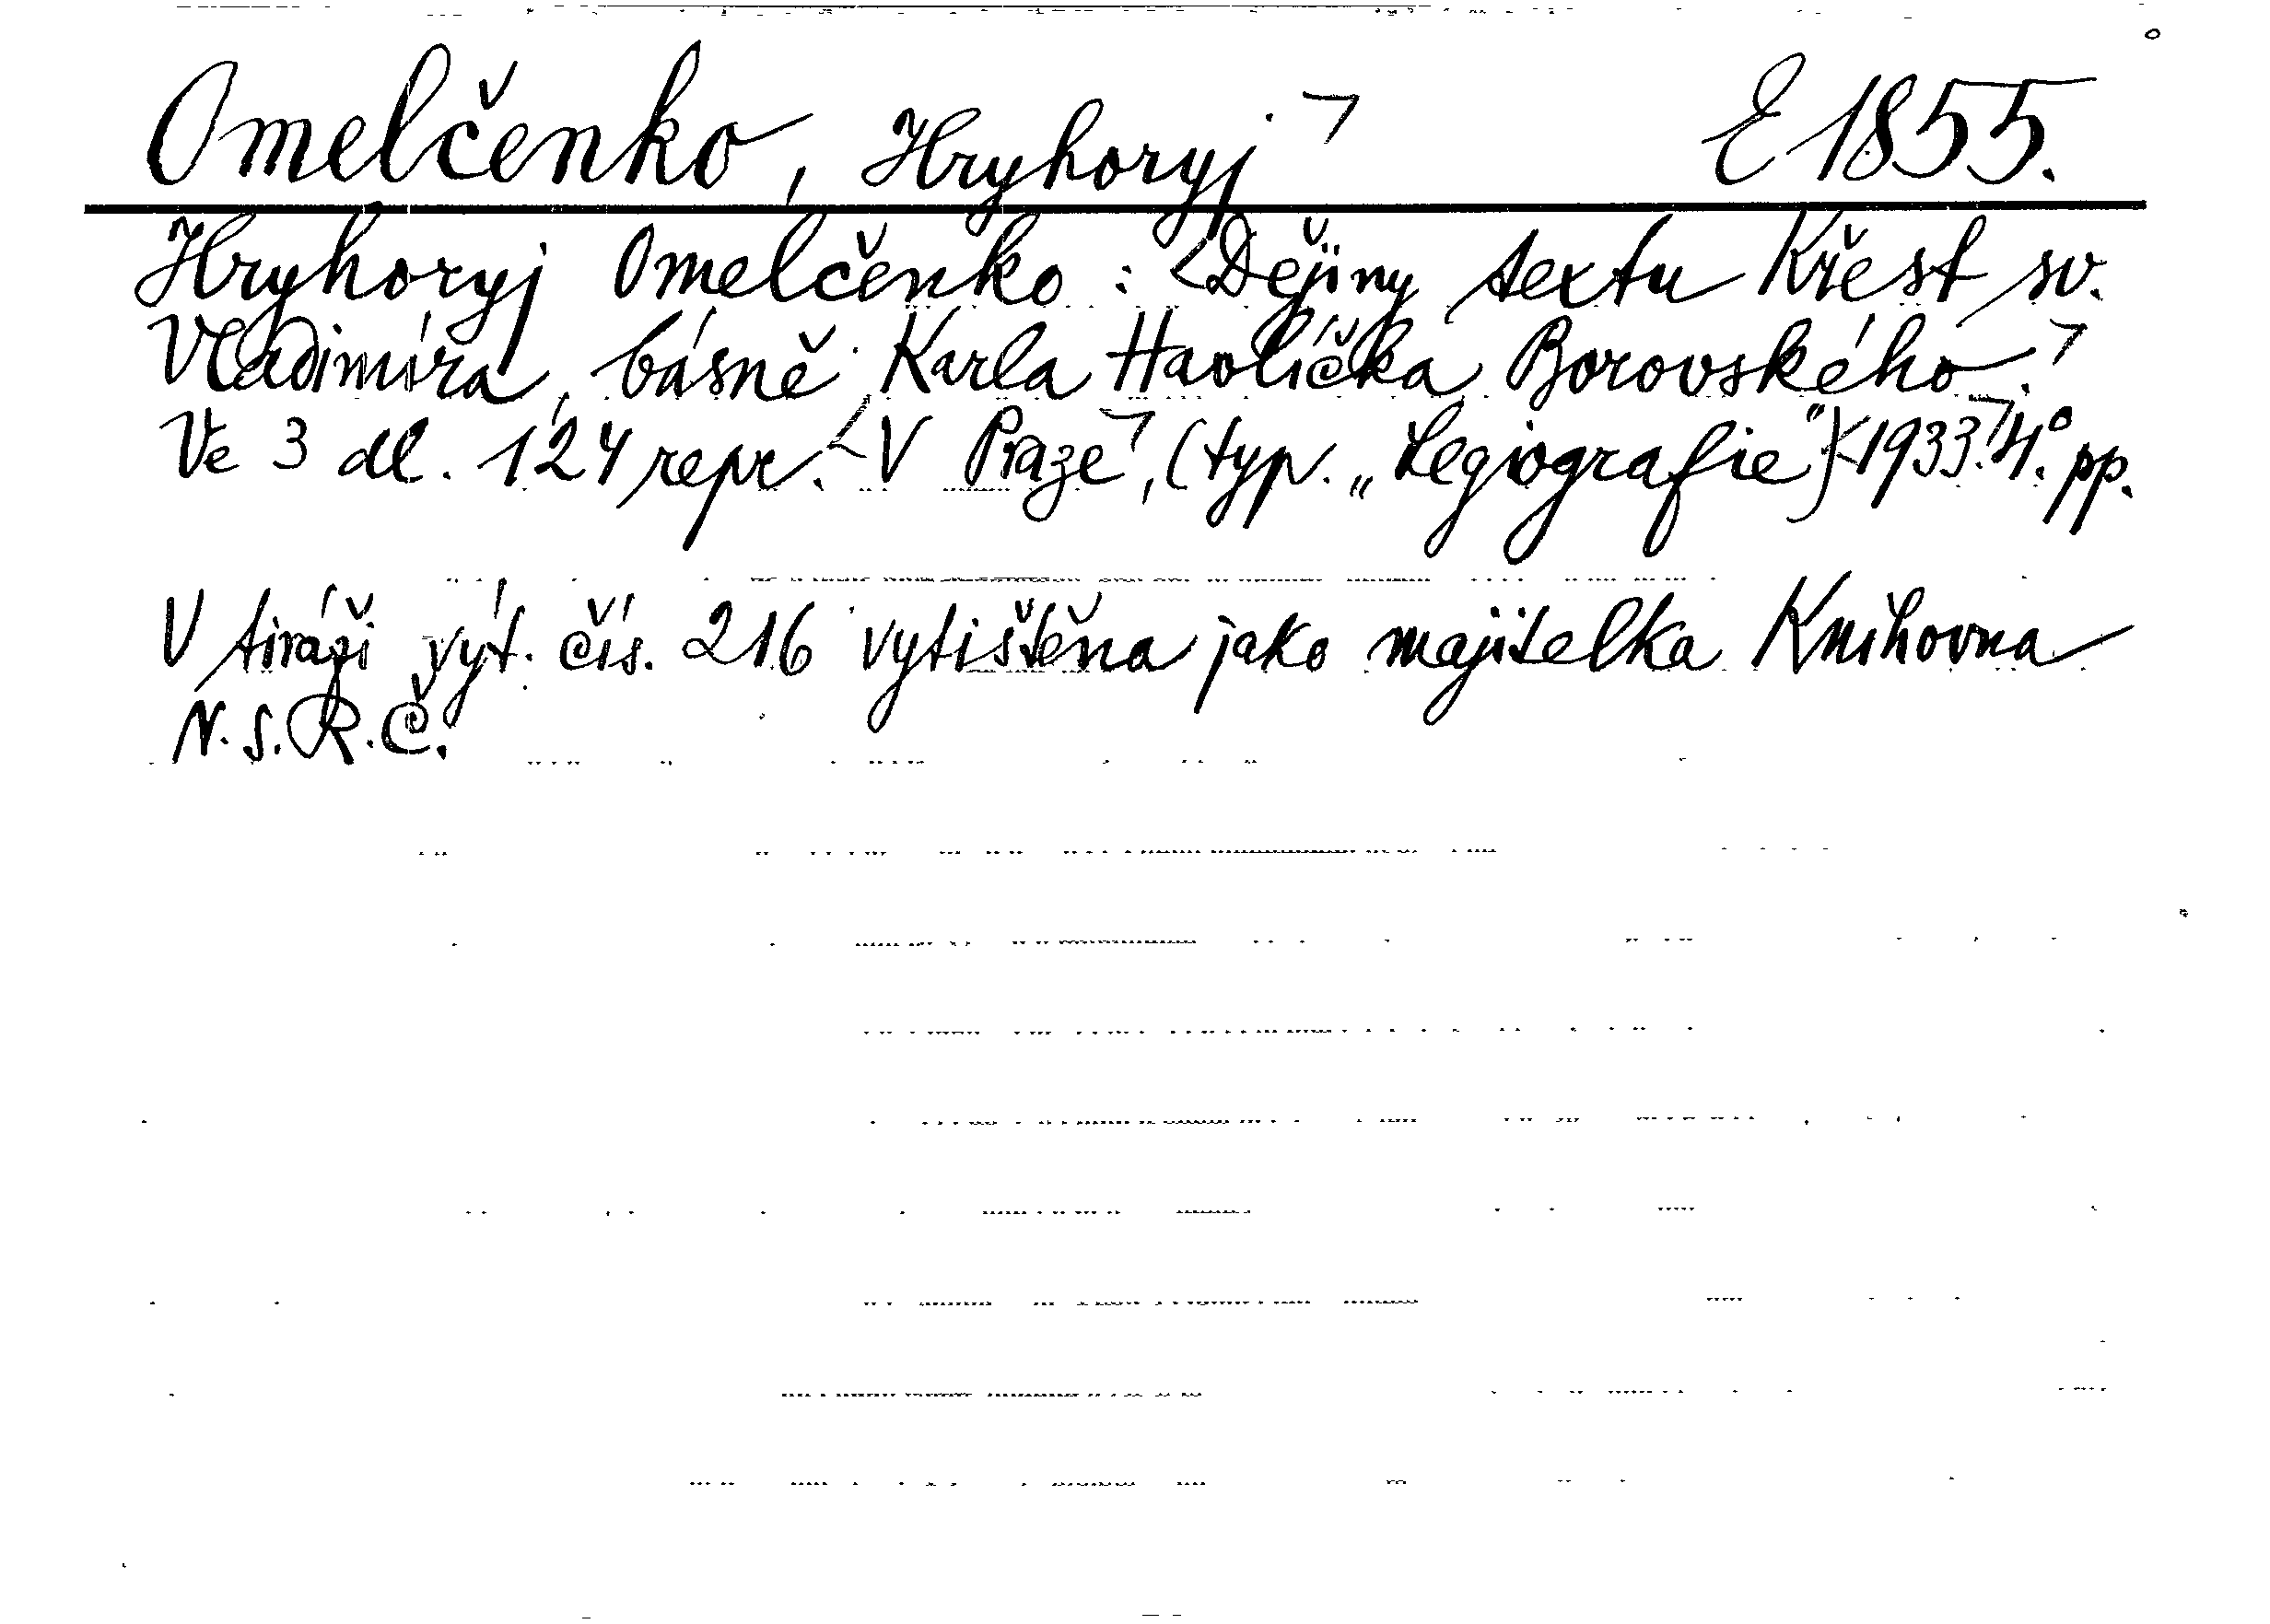 Omelčenko, Hryhoryj ¬ E 1855.
Hryhoryj Omelčenko : <Dějiny textu Křest sv.
Vladimíra, básně Karla Havlíčka Borovského.¬
Ve 3 dl. 124 repr. <V Praze¬, (typ. „Legiografie") <1933.¬ 4.° pp.
V tiráži výt. čís. 216 vytištěna jako majitelka Knihovna
N.S.R.Č.